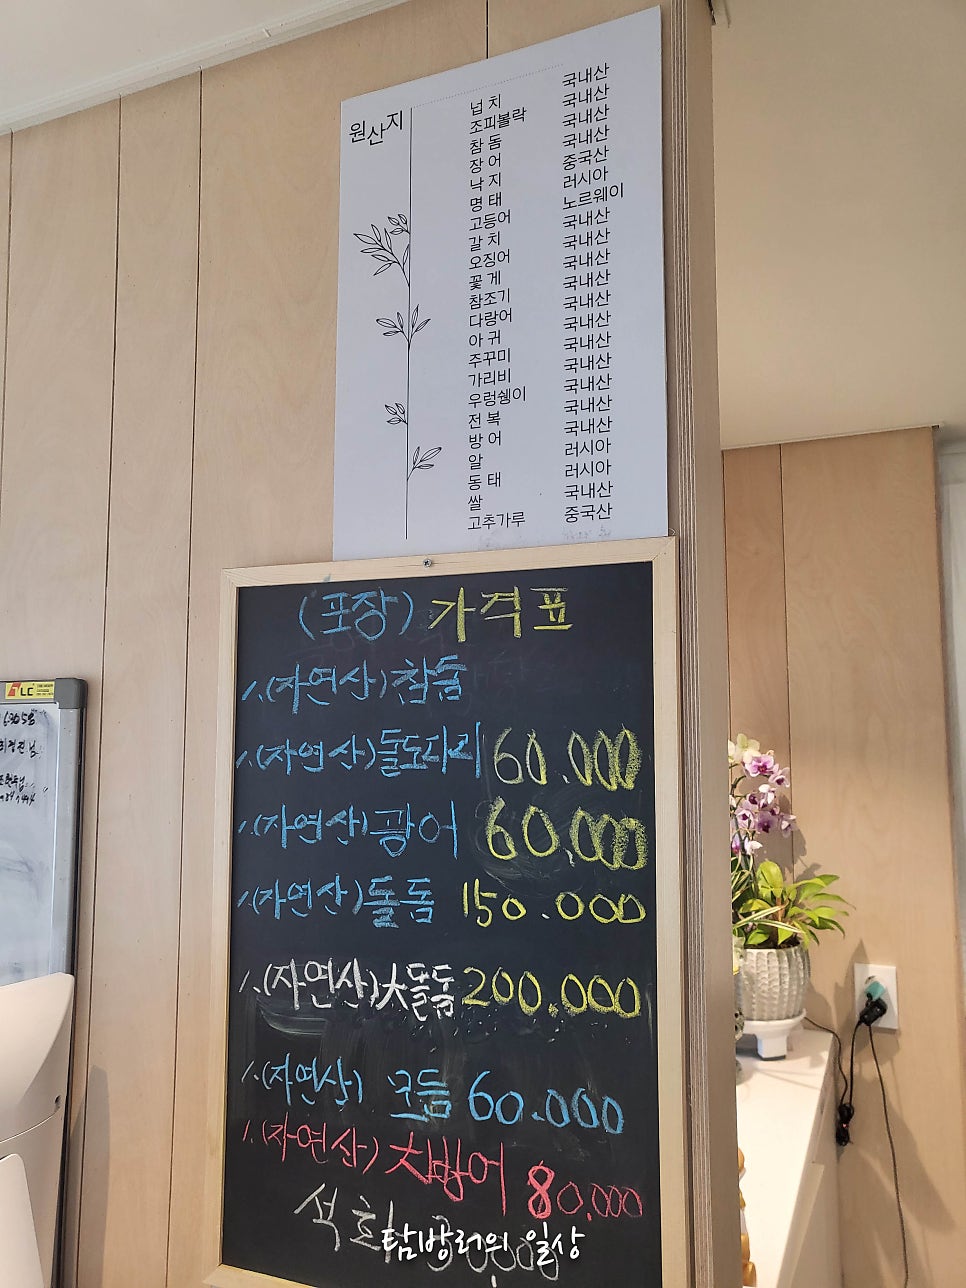 원산지
넙치 국내산
조피볼락 국내산
참돔 국내산
장어 국내산
낙지 중국산
명태 러시아
고등어 노르웨이
갈치 국내산
오징어 국내산
꽃게 국내산
참조기 국내산
다랑어 국내산
아귀 국내산
주꾸미 국내산
가리비 국내산
우렁쉥이 국내산
전복 국내산
방어 국내산
알 러시아
동태 러시아
쌀 국내산
고추가루 중국산
(포장) 가격표
1.(자연산)참돔
1.(자연산)돌도다리 60.000
1.(자연산)광어 60.000
1.(자연산)돌돔 150.000
1.(자연산)大돌돔 200.000
1.(자연산) 모듬 60.000
1.(자연산) 大방어 80.000
석화
탐방러윈 일상
LC